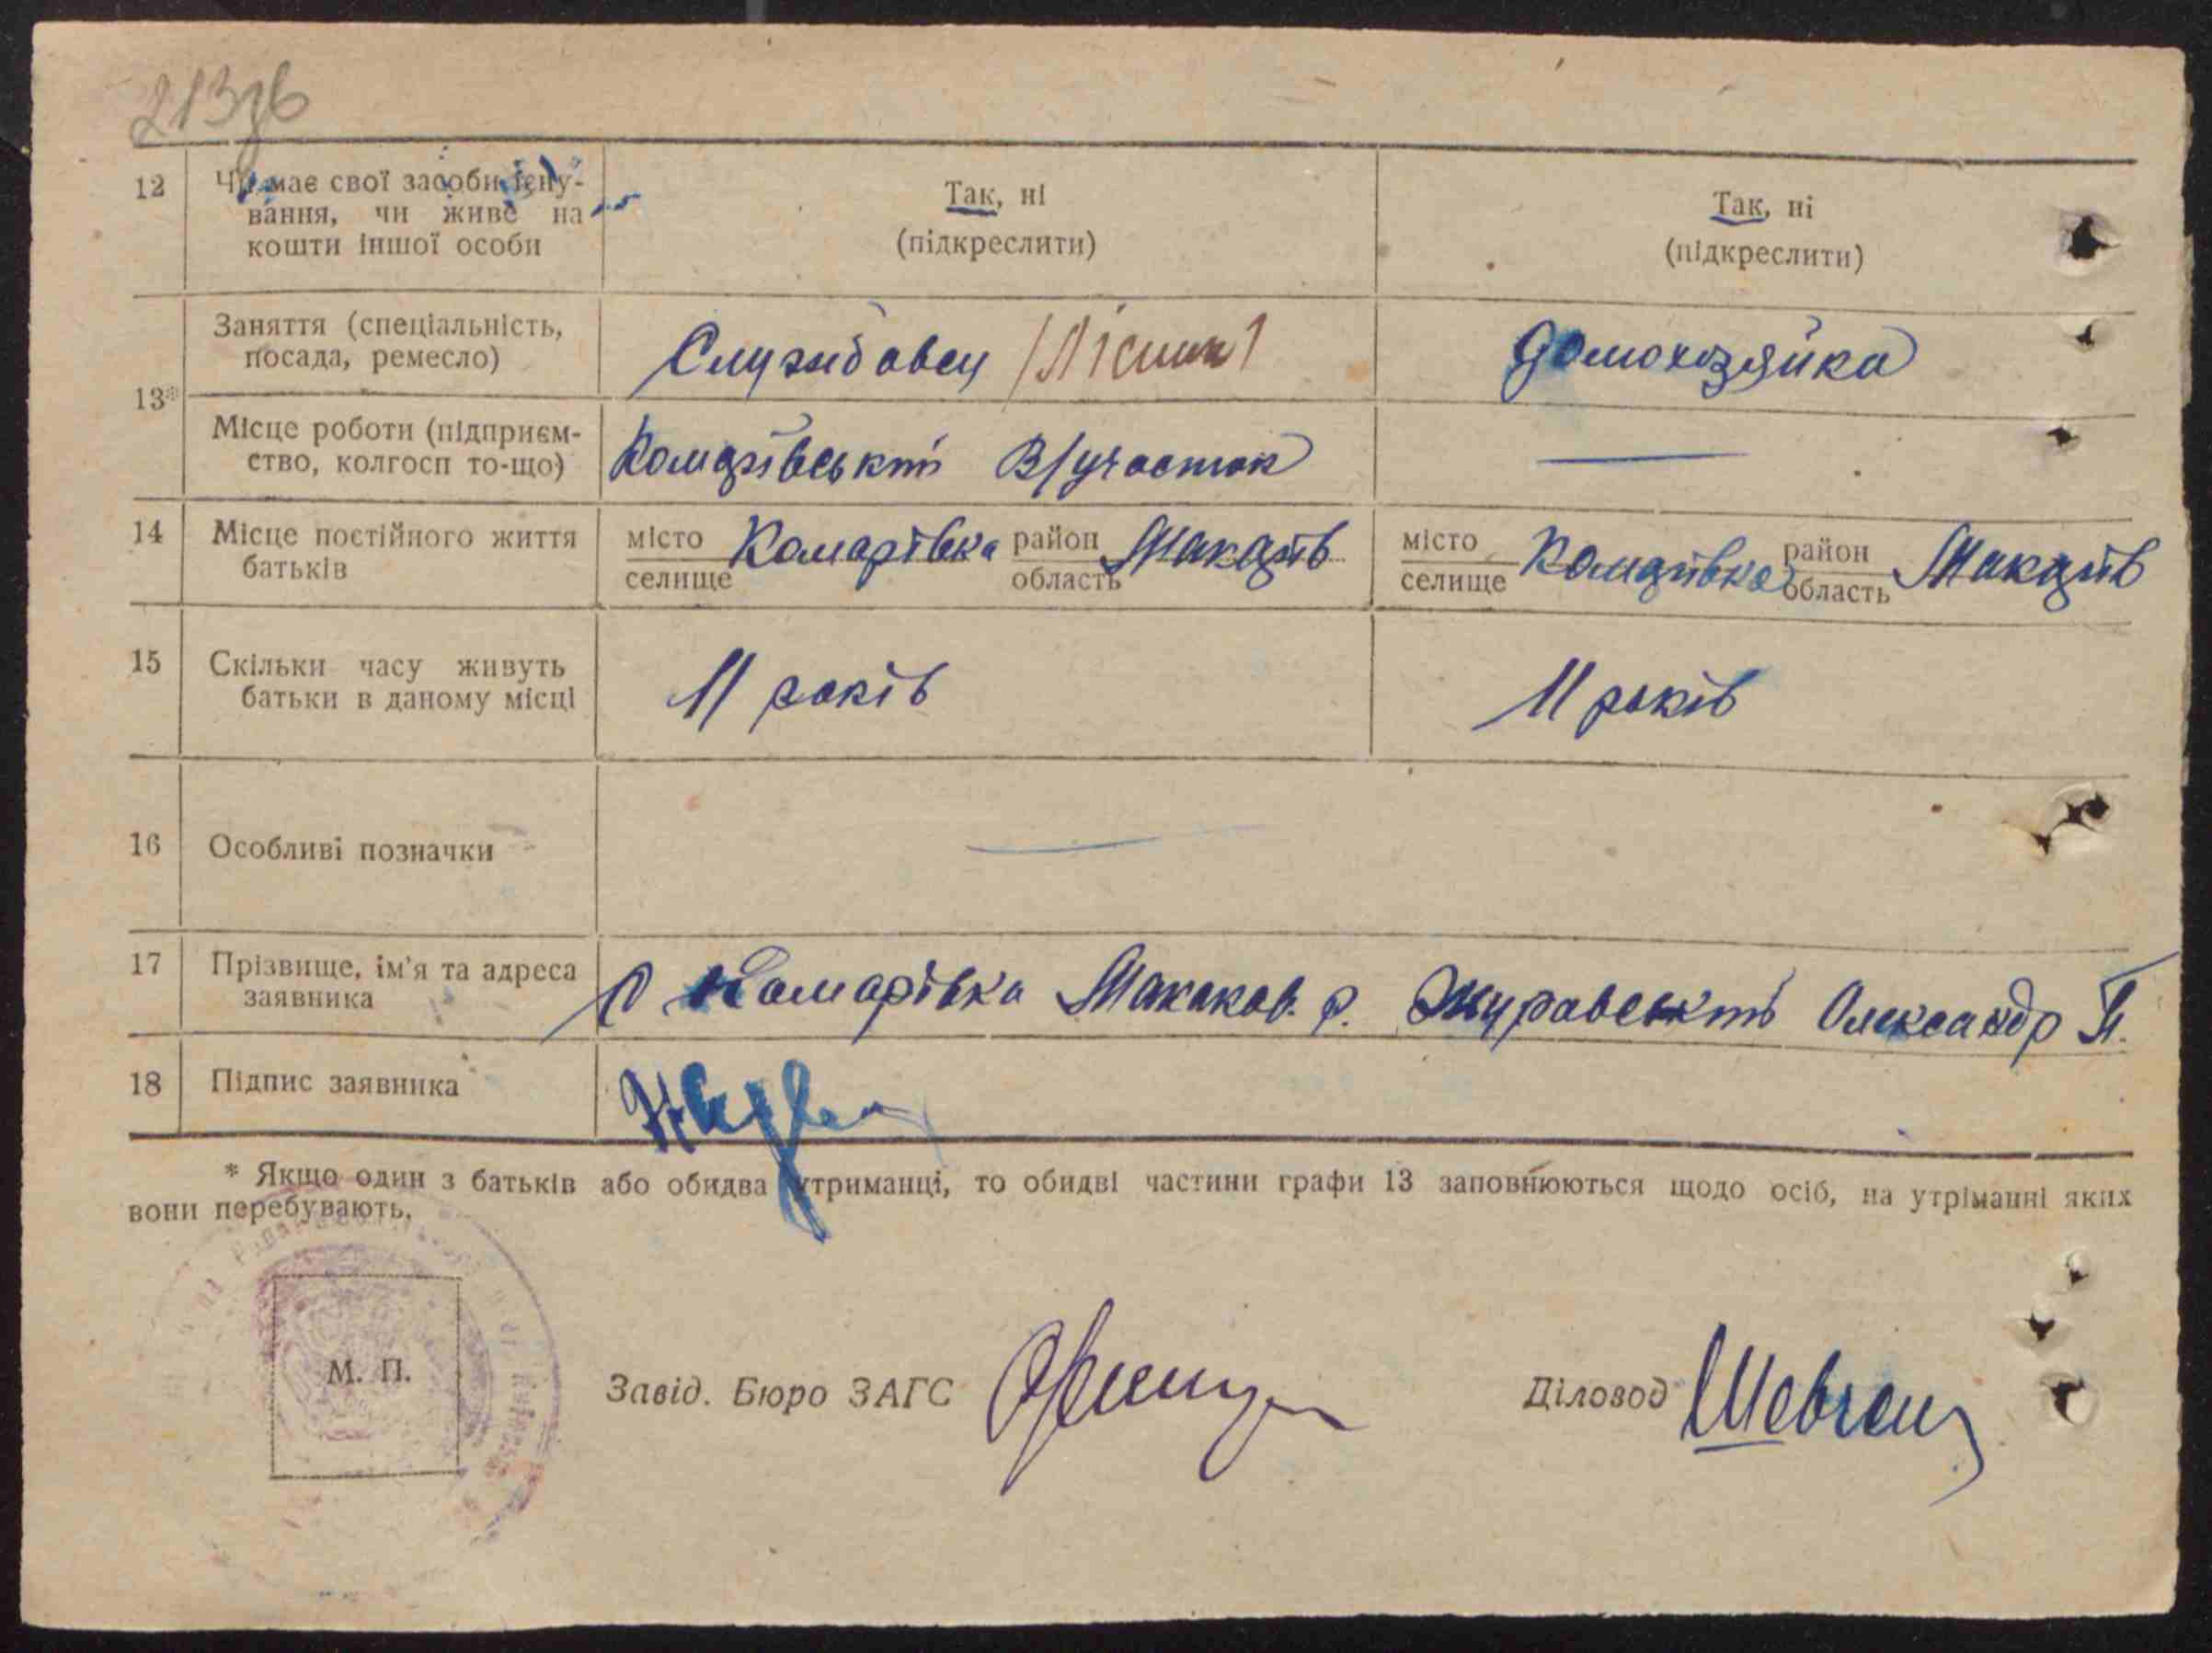 213зв
12 Чи має свої засоби існу-
вання, чи живе на
кошти іншої особи
Так, ні
(підкреслити)
Так, ні
(підкреслити)
13*
Заняття (спеціальність,
посада, ремесло)
Службовец /Лісник/
домохозяйка
Місце роботи (підприєм-
ство, колгосп то-що)
Комарівський В/участок
14 Місце постійного життя
батьків
місто
селище
Комарівка
район
область
Макарів
місто
селище
Комарівка
район
область
Макарів
15 Скільки часу живуть
батьки в даному місці
11 років
11 років
16 Особливі позначки
17 Прізвище, ім'я та адреса
заявника
С Комарівка р. Журавський Олександр П.
18 Підпис заявника
* Якщо один з батьків або обидва утриманці, то обидві частини графи 13 заповнюються щодо осіб, на утріманні яких
вони перебувають.
М. П.
Завід. Бюро ЗАГС
Діловод Шевченко